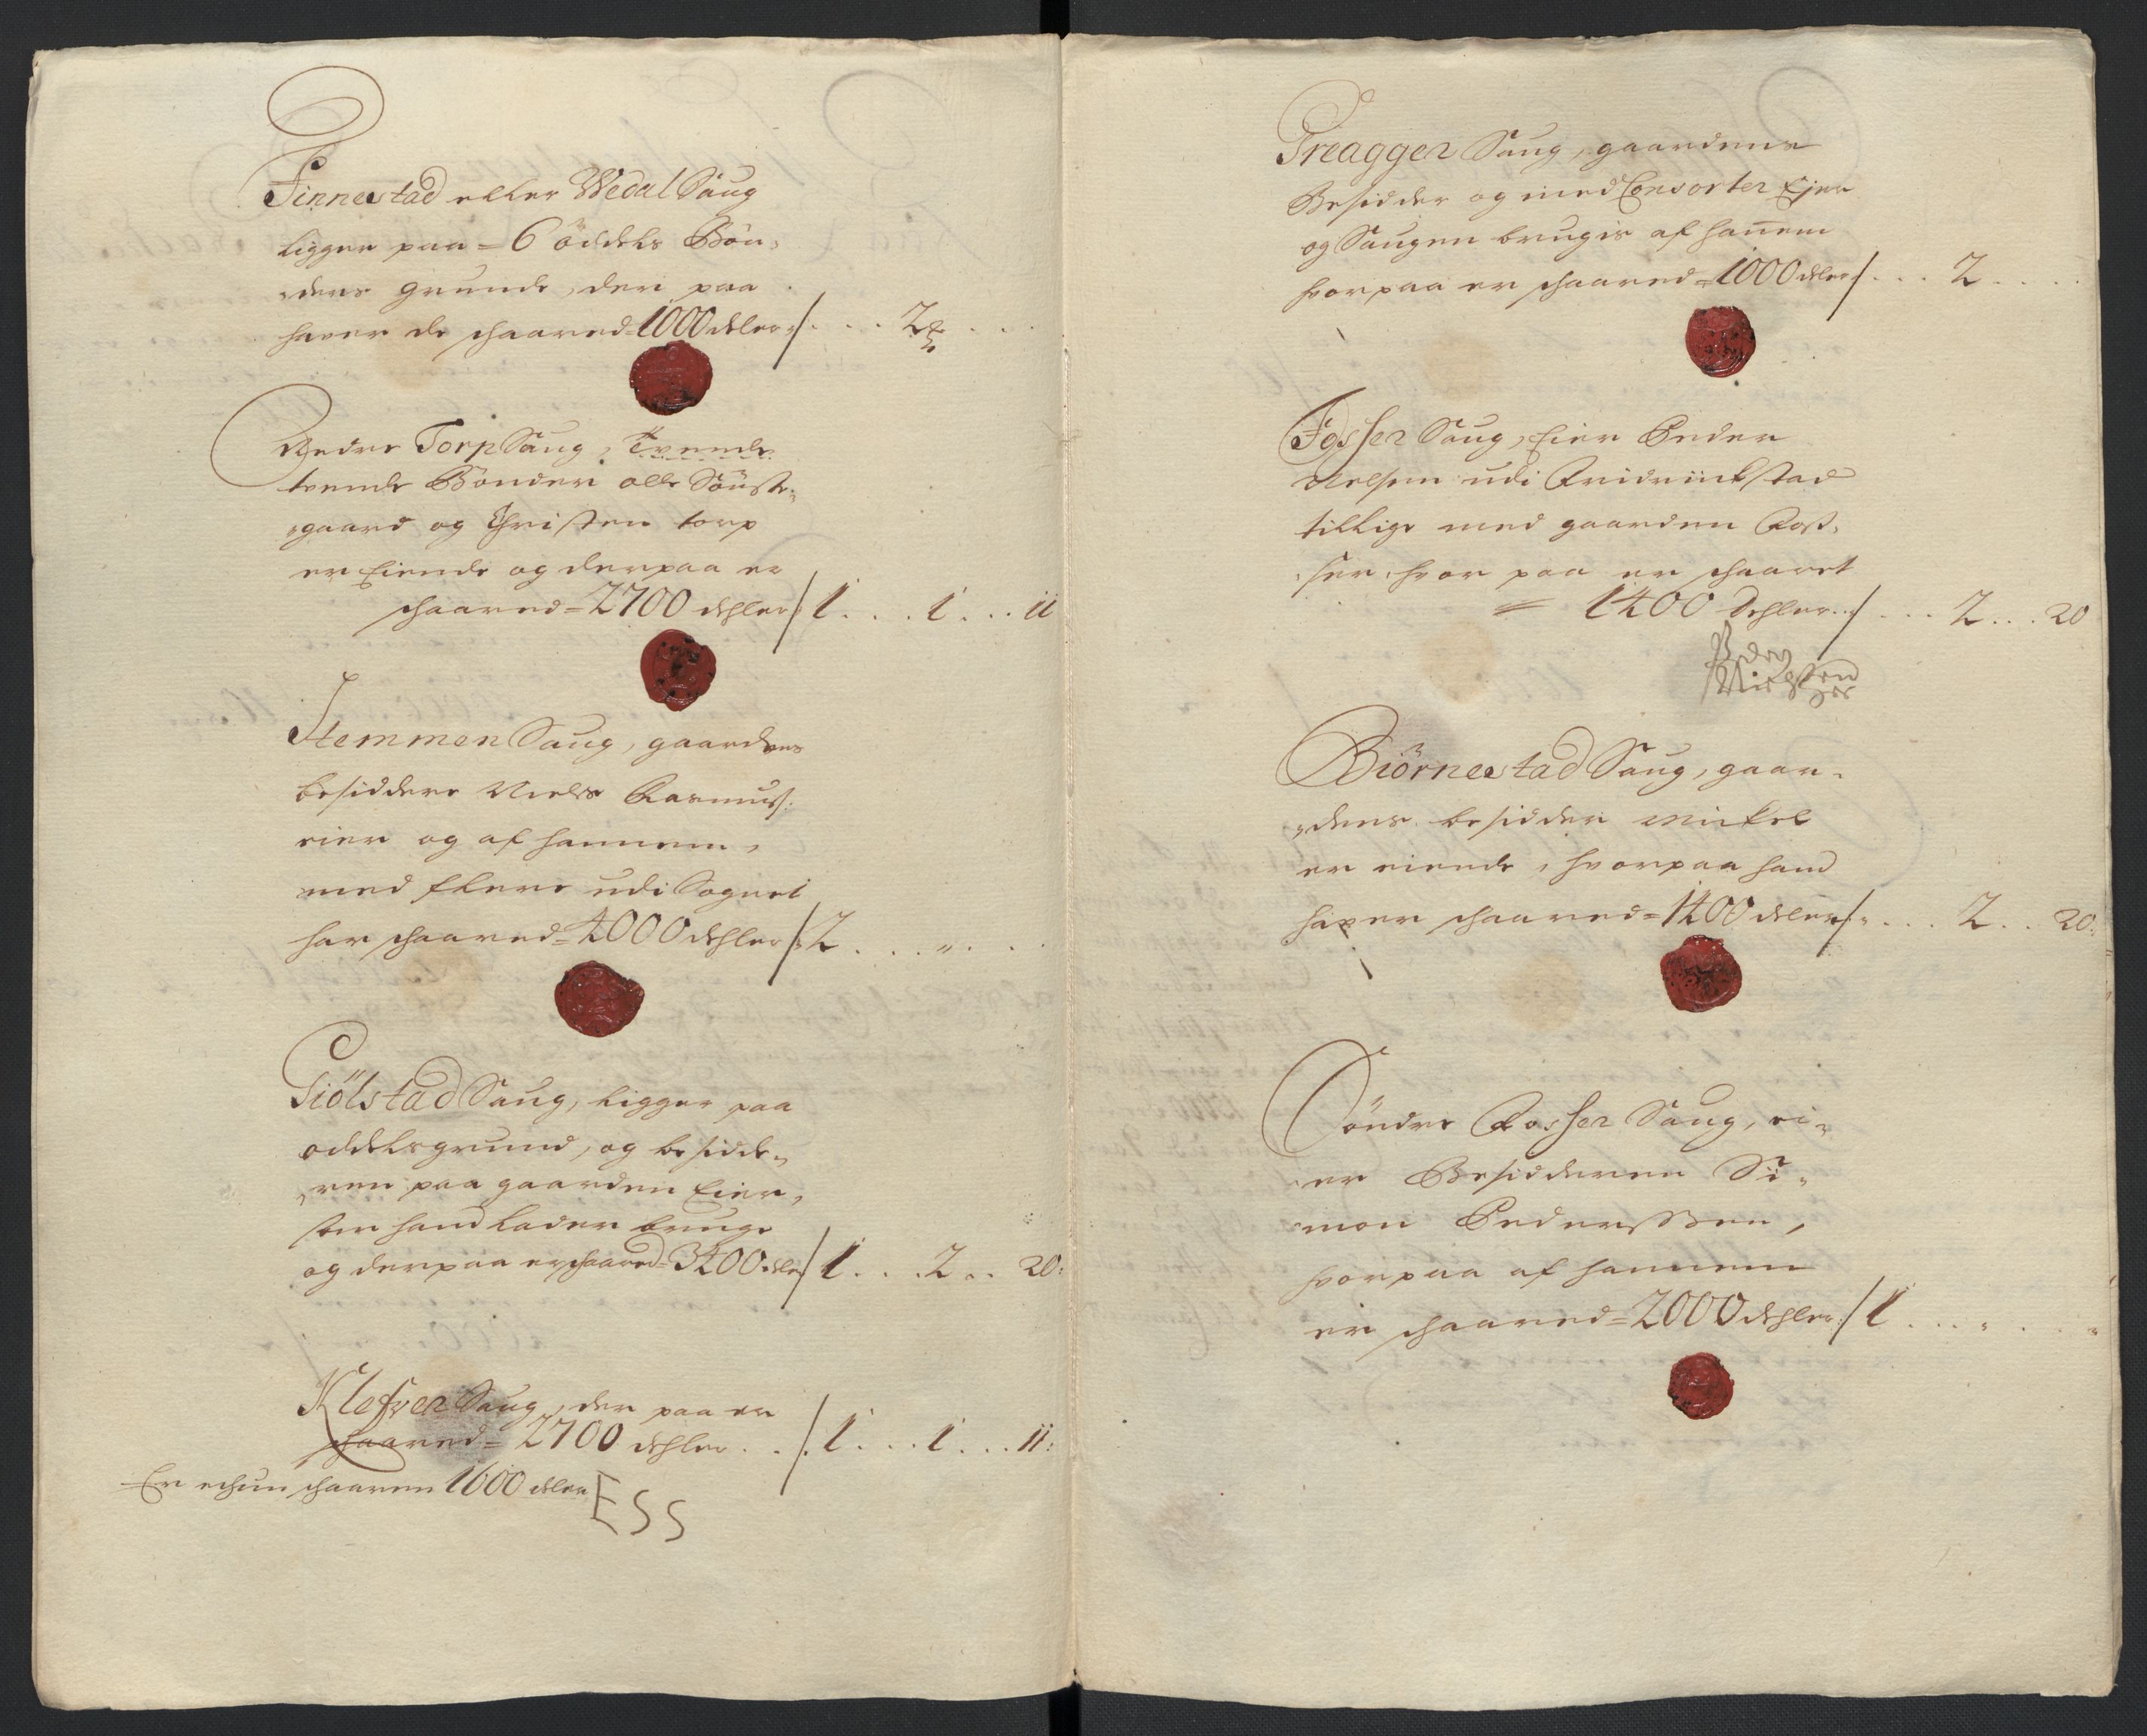 Finnestad eller Wedal Saug
ligger paa = 6 oddels Bøn-
ders grunde, der paa
hafver de schaared = 1000 deler /. . . 2
Nedre Torp Saug, Tvende
tvende Bönder olle
gaard og Christen torp
er Eiende og derpaa er
schaared = 2700 dehler / 1 . . . 1 . . . 11
Stemmen Saug, gaardens
besiddere Niels Rasmuss:
eier og af hannem,
med flere udi Sognet
har schaared = 4000 dehler / 2 . . . „ . . .
Giölstad Saug, ligger paa
oddelsgrund, og besidde-
ren paa gaarden Eier,
som hand lader bruge
og derpaa er schaared = 3400 deler / 1 . . . 2 . . 20:
Klefver Saug, der paa er
schaared = 2700 dehler . . /. 1 . . . 1 . . . 11:
Er schaaren 1600 deler ESS
Treagger Saug, gaardens
Besidder og med Consorter Ejer
og Saugen brugis af hañem
hvorpaa er schaared = 1000 deler /. . . 2 . . . .
Fosser Saug, Eier Peder
Nelsen udi Fridrichstad
tillige med gaarden Foss-
ser, hvor paa er schaaret
= 1400 Dehler. / . . . 2 . . . 20
Peder
Biörnestad Saug, gaar-
dens besidder Mickel
er eiende, hvorpaa hand
hafver schaared = 1400 deler /. . . . 2 . . 20:
Söndre Fosser Saug, ei-
er Besidderen Si-
mon Pederssen,
hvorpaa af hannem
er schaared = 2000 dehler / 1 . . . „ . . „